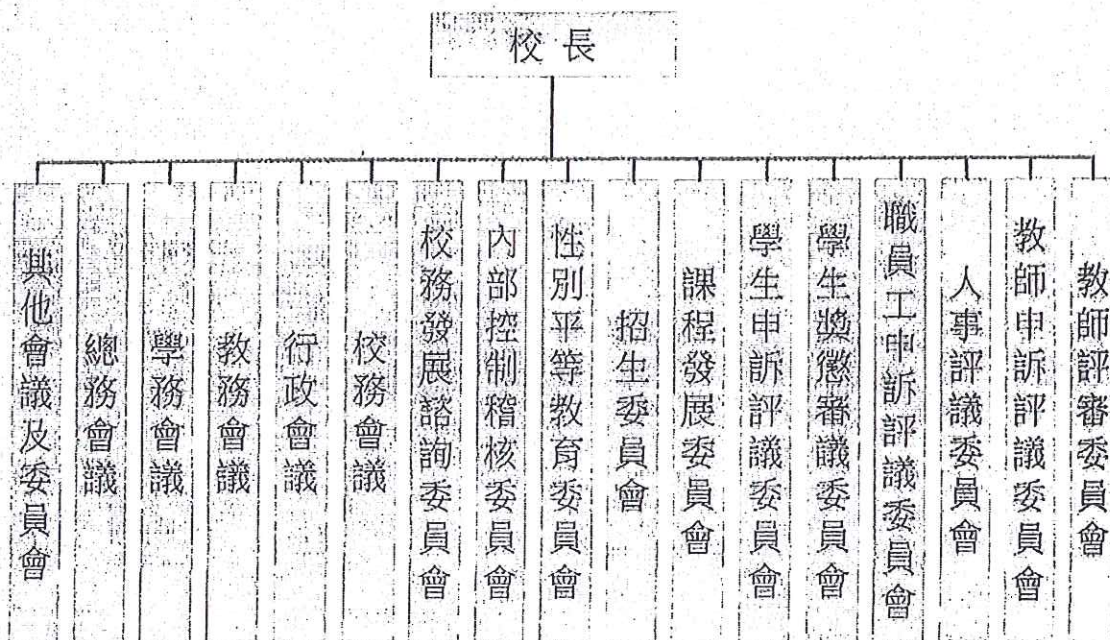 校長
其他會議及委員會
總務會議
學務會議
教務會議
行政會議
校務會議
校務發展諮詢委員會
內部控制稽核委員會
性別平等教育委員會
招生委員會
課程發展委員會
學生申訴評議委員會
學生獎懲審議委員會
職員工申訴評議委員會
人事評議委員會
教師申訴評議委員會
教師評審委員會